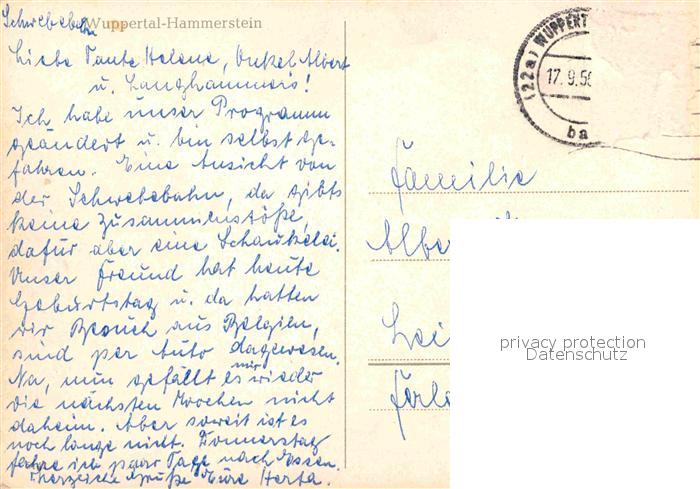 Schwebebahn Wuppertal-Hammerstein
Liebe Tante Helene, Onkel Albert
u. Langhammers!
Ich habe unser Programm
geändert u. bin selbst ge-
fahren. Eine Ansicht von
der Schwebebahn, da gibts
keine Zusammenstöße,
dafür aber eine Schaukelei.
Unser Freund hat heute
Geburtstag u. da hatten
wir Besuch aus Belgien,
sind per Auto dagewesen.
Na, nun gefällt es mir wieder
die nächsten Wochen nicht
daheim. Aber soweit ist es
noch lange nicht. Donnerstag
fahre ich paar Tage nach Essen.
Herzliche Grüße Eure Herta.
(22a) WUPPERT
17.9.56
ba
Familie
Albe
Lei
privacy protection
Datenschutz